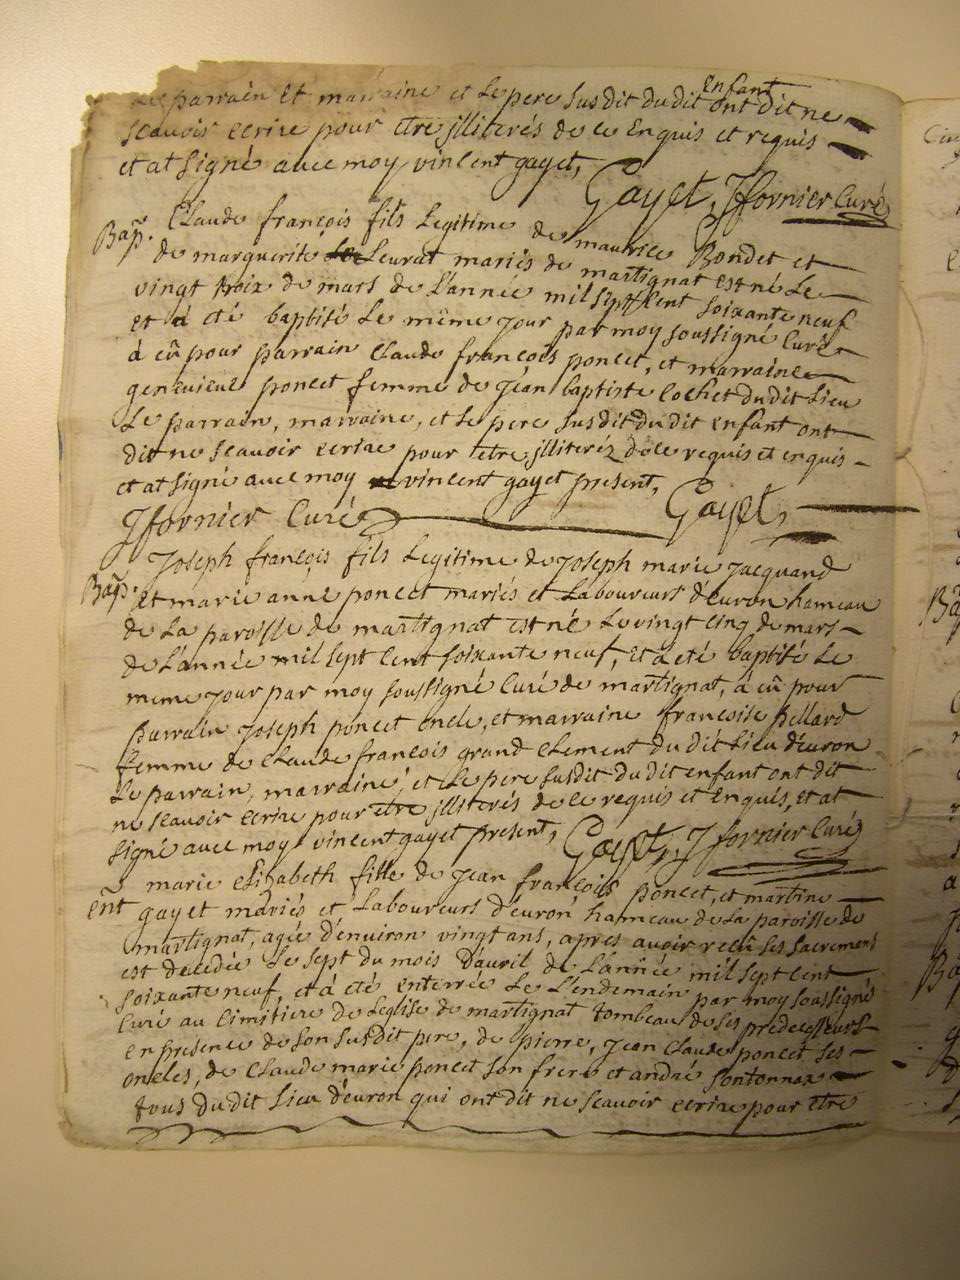 Le parrain et marraine et le pere susdit du dit enfant ont dit ne
scavoir ecrire pour être jlliterés de ce Enquis et requis
et at signé avec moy vincent gayet,
Gayet, Jfornier Curé
Bap. Claude françois fils Legitime de maurice Bondet et
de marguerite Leurat mariés de martignat est né Le
vingt troix de mars de L'année mil sept cent soixante neuf
et à eté baptisé Le même jour par moy soussigné Curé
à eû pour parrain Claude françois poncet, et marraine
genevieve poncet femme de jean baptiste Cochet du dit Lieu
Le parrain, marraine, et Le pere susdit du dit enfant ont
dit ne scavoir ecrire pour être jlliteréz de ce requis et enquis
et at signé avec moy vincent gayet present,
Jfornier Curé Gayet,
Bap. Joseph françois fils Legitime de Joseph marie jacquand
et marie anne poncet mariés et Laboureurs d'évron hameau
de La paroisse de martignat est né Le vingt cinq de mars
de L'année mil sept cent soixante neuf, et à eté baptisé Le
meme jour par moy soussigné Curé de martignat, à eû pour
parrain Joseph poncet oncle, et marraine françoise pillard
femme de Claude françois grand clement du dit Lieu d'évron
Le parrain, marraine, et Le pere susdit du dit enfant ont dit
ne scavoir ecrire pour être jlliterés de ce requis et enquis, et at
signé avec moy vincent gayet present, Gayet, Jfornier Curé
marie elizabeth fille de jean françois poncet, et martine
eñt gayet mariés et Laboureurs d'évron hameau de La paroisse de
martignat, agée d'environ vingt ans, apres avoir reçû ses sacrements
est decedée Le sept du mois D'avril de L'année mil sept cent
soixante neuf et à eté enterrée Le Lendemain par moy soussigné
Curé au Cimitiere de Leglise de martignat tombeau de ses predecesseurs
en presence de son susdit pere, de pierre, jean Claude poncet ses
oncles, de Claude marie poncet son frere et andré sontonnax
tous du dit Lieu d'évron qui ont dit ne scavoir ecrire pour être